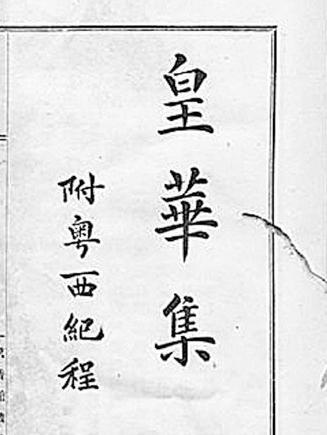 皇華集
附粤西紀程